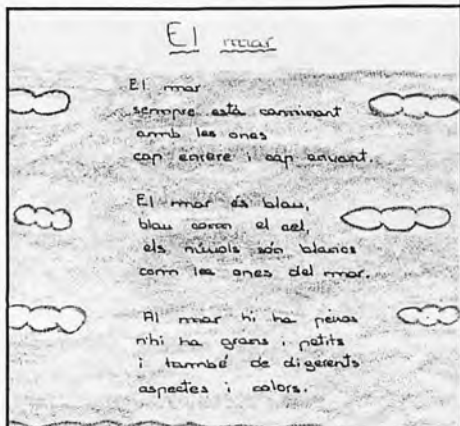 El mar
El mar
sempre està caminant
amb les ones
cap enrere i cap envant.
El mar és blau,
blau com el cel,
els núvols són blancs
com les ones del mar.
Al mar hi ha peixos
n'hi ha grans i petits
i també de digerents
aspectes i colors.